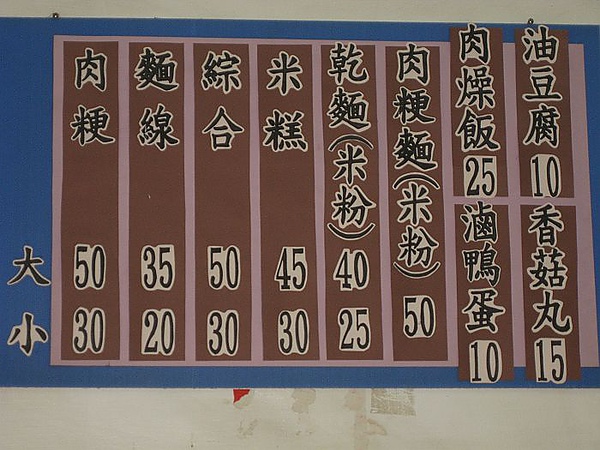 油豆腐 10
香菇丸 15
肉燥飯 25
滷鴨蛋 10
肉粳麵(米粉) 50
乾麵(米粉) 40 25
米糕 45 30
綜合 50 30
麵線 35 20
肉粳 50 30
大 小